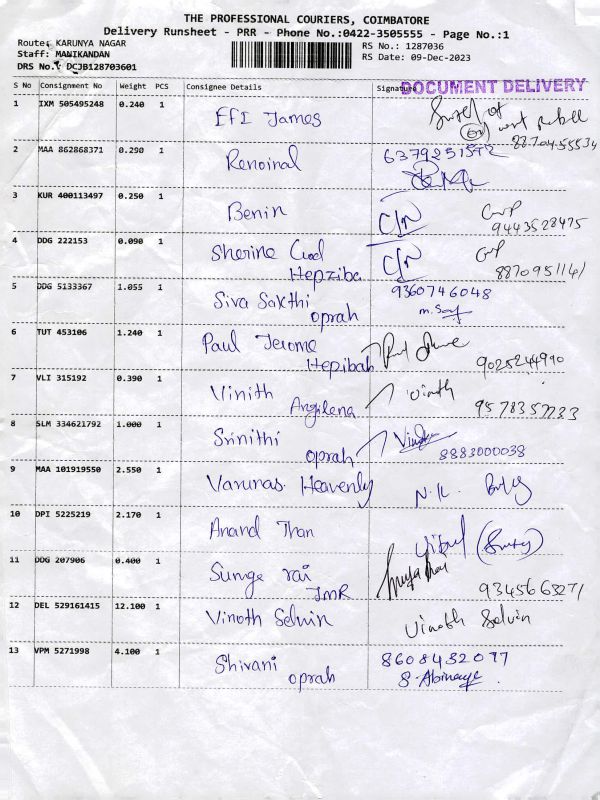 THE PROFESSIONAL COURIERS, COIMBATORE
Delivery Runsheet - PRR - Phone No.:0422-3505555 - Page No.:1
Route: KARUNYA NAGAR RS No.: 1287036
Staff: MANIKANDAN RS Date: 09-Dec-2023
DRS No.: DCJB128703601
DOCUMENT DELIVERY
S No Consignment No Weight PCS Consignee Details Signature
1 IXM 505495248 0.240 1 EFI James
2 MAA 862868371 0.290 1 Renoinal
3 KUR 400113497 0.250 1 Benin C/N
9443528475
4 DDG 222153 0.090 1 Sherine God C/N
Hepziba 8870951141
5 DDG 5133367 1.055 1 Siva Sakthi 9360746048
oprah
6 TUT 453106 1.240 1 Paul Jerome
Hepibah 9025244990
7 VLI 315192 0.390 1 Vinith Vinith
Angilena
8 SLM 334621792 1.000 1 Srinithi
oprah 8883000038
9 MAA 101919550 2.550 1 Varunas Heavenly N.K.
10 DPI 5225219 2.170 1 Anand Than
11 DDG 207906 0.400 1 Sunge rai
JMR 9345663271
12 DEL 529161415 12.100 1 Vinoth Selvin Vinoth Selvin
13 VPM 5271998 4.100 1 Shivani 8608432077
oprah S. Abinaya